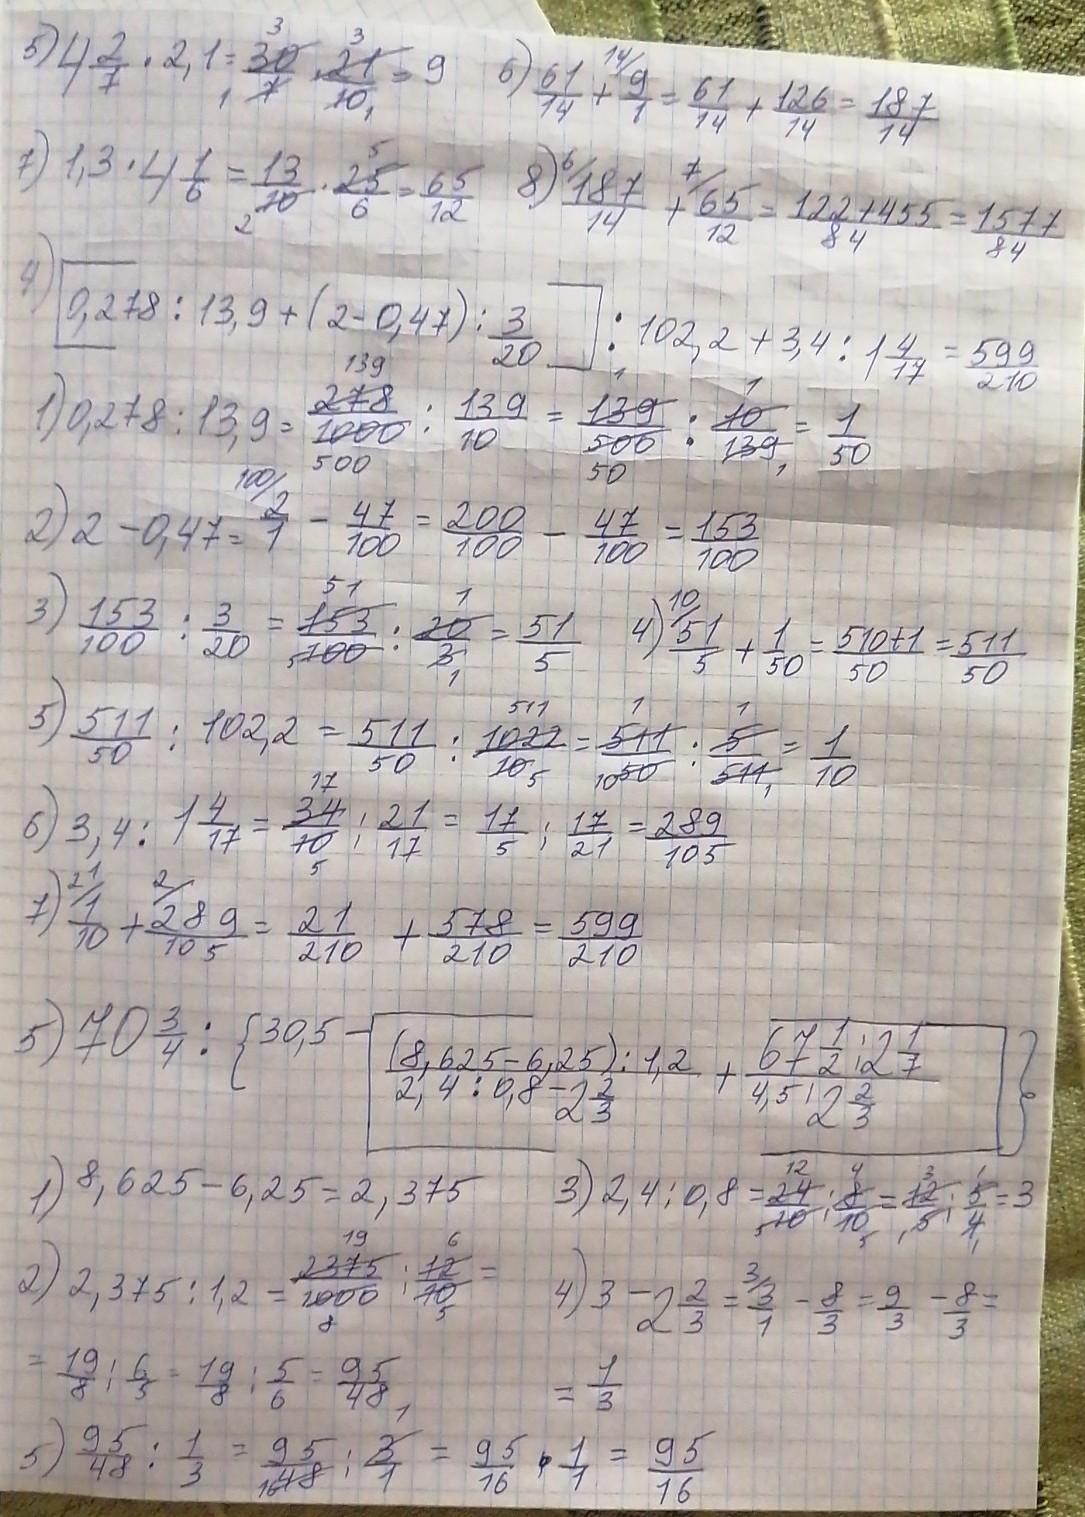 5) 4 2/7 · 2,1 = 30/7 · 21/10 = 9
6) 61/14 + 9/1 = 61/14 + 126/14 = 187/14
7) 1,3 · 4 1/6 = 13/10 · 25/6 = 65/12
8) 187/14 + 65/12 = 122+455/84 = 1577/84
4) [0,278 : 13,9 + (2 - 0,47) : 3/20] : 102,2 + 3,4 : 1 4/17 = 599/210
1) 0,278 : 13,9 = 278/1000 : 139/10 = 139/500 : 10/139 = 1/50
2) 2 - 0,47 = 2/1 - 47/100 = 200/100 - 47/100 = 153/100
3) 153/100 : 3/20 = 153/100 : 20/3 = 51/5
4) 51/5 + 1/50 = 510+1/50 = 511/50
5) 511/50 : 102,2 = 511/50 : 1022/10 = 511/50 : 5/511 = 1/10
6) 3,4 : 1 4/17 = 34/10 : 21/17 = 17/5 : 17/21 = 289/105
7) 1/10 + 289/105 = 21/210 + 578/210 = 599/210
5) 70 3/4 : {30,5 - [(8,625 - 6,25) : 1,2 / 2,4 : 0,8 - 2 2/3 + 67 1/2 : 2 1/7 / 4,5 : 2 2/3]}
1) 8,625 - 6,25 = 2,375
3) 2,4 : 0,8 = 24/10 : 8/10 = 12/5 : 5/4 = 3
2) 2,375 : 1,2 = 2375/1000 : 12/10 =
= 19/8 : 6/5 = 19/8 : 5/6 = 95/48
4) 3 - 2 2/3 = 3/1 - 8/3 = 9/3 - 8/3 =
= 1/3
5) 95/48 : 1/3 = 95/48 : 3/1 = 95/16 · 1/1 = 95/16